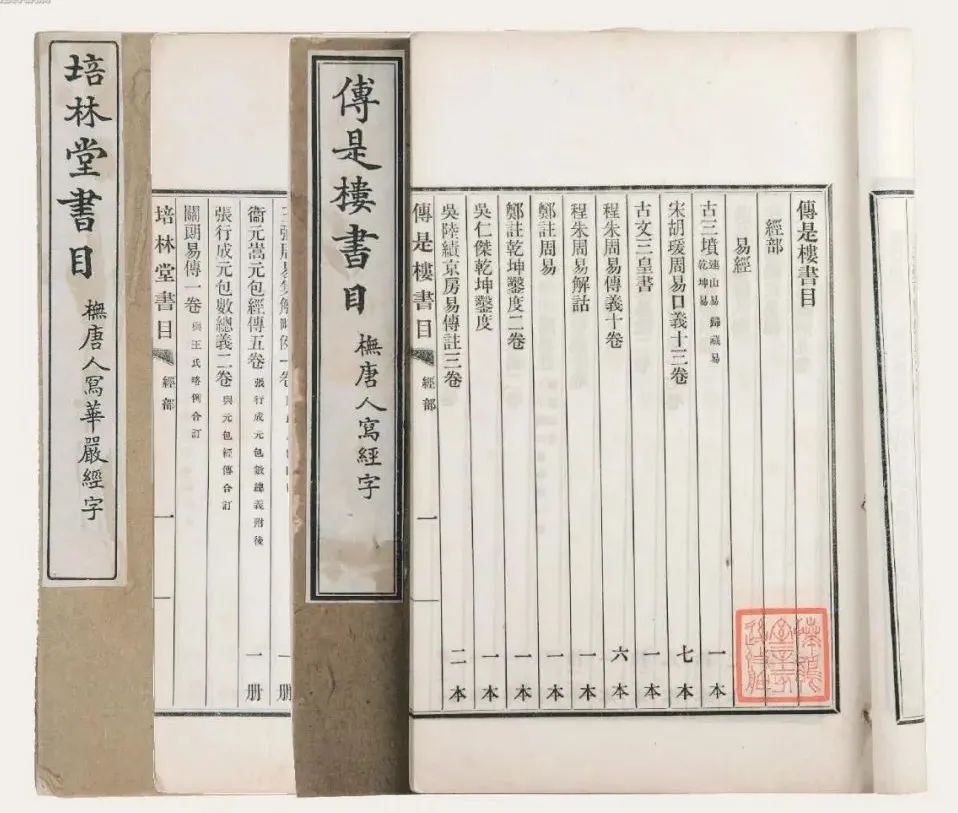 傳是樓書目
經部
易經
古三墳 連山易 歸藏易 乾坤易 一本
宋胡瑗周易口義十三卷 七本
古文三皇書 一本
程朱周易傳義十卷 六本
程朱周易解詁 一本
鄭註周易 一本
鄭註乾坤鑿度二卷 一本
吳仁傑乾坤鑿度 一本
吳陸績京房易傳註三卷 二本
傳是樓書目 經部 一
傳是樓書目
橅唐人寫經字
衞元嵩元包經傳五卷 張行成元包數總義附後 一册
張行成元包數總義二卷 與元包經傳合訂
關朗易傳一卷 與王氏略例合訂
培林堂書目 經部 一
培林堂書目
橅唐人寫華嚴經字